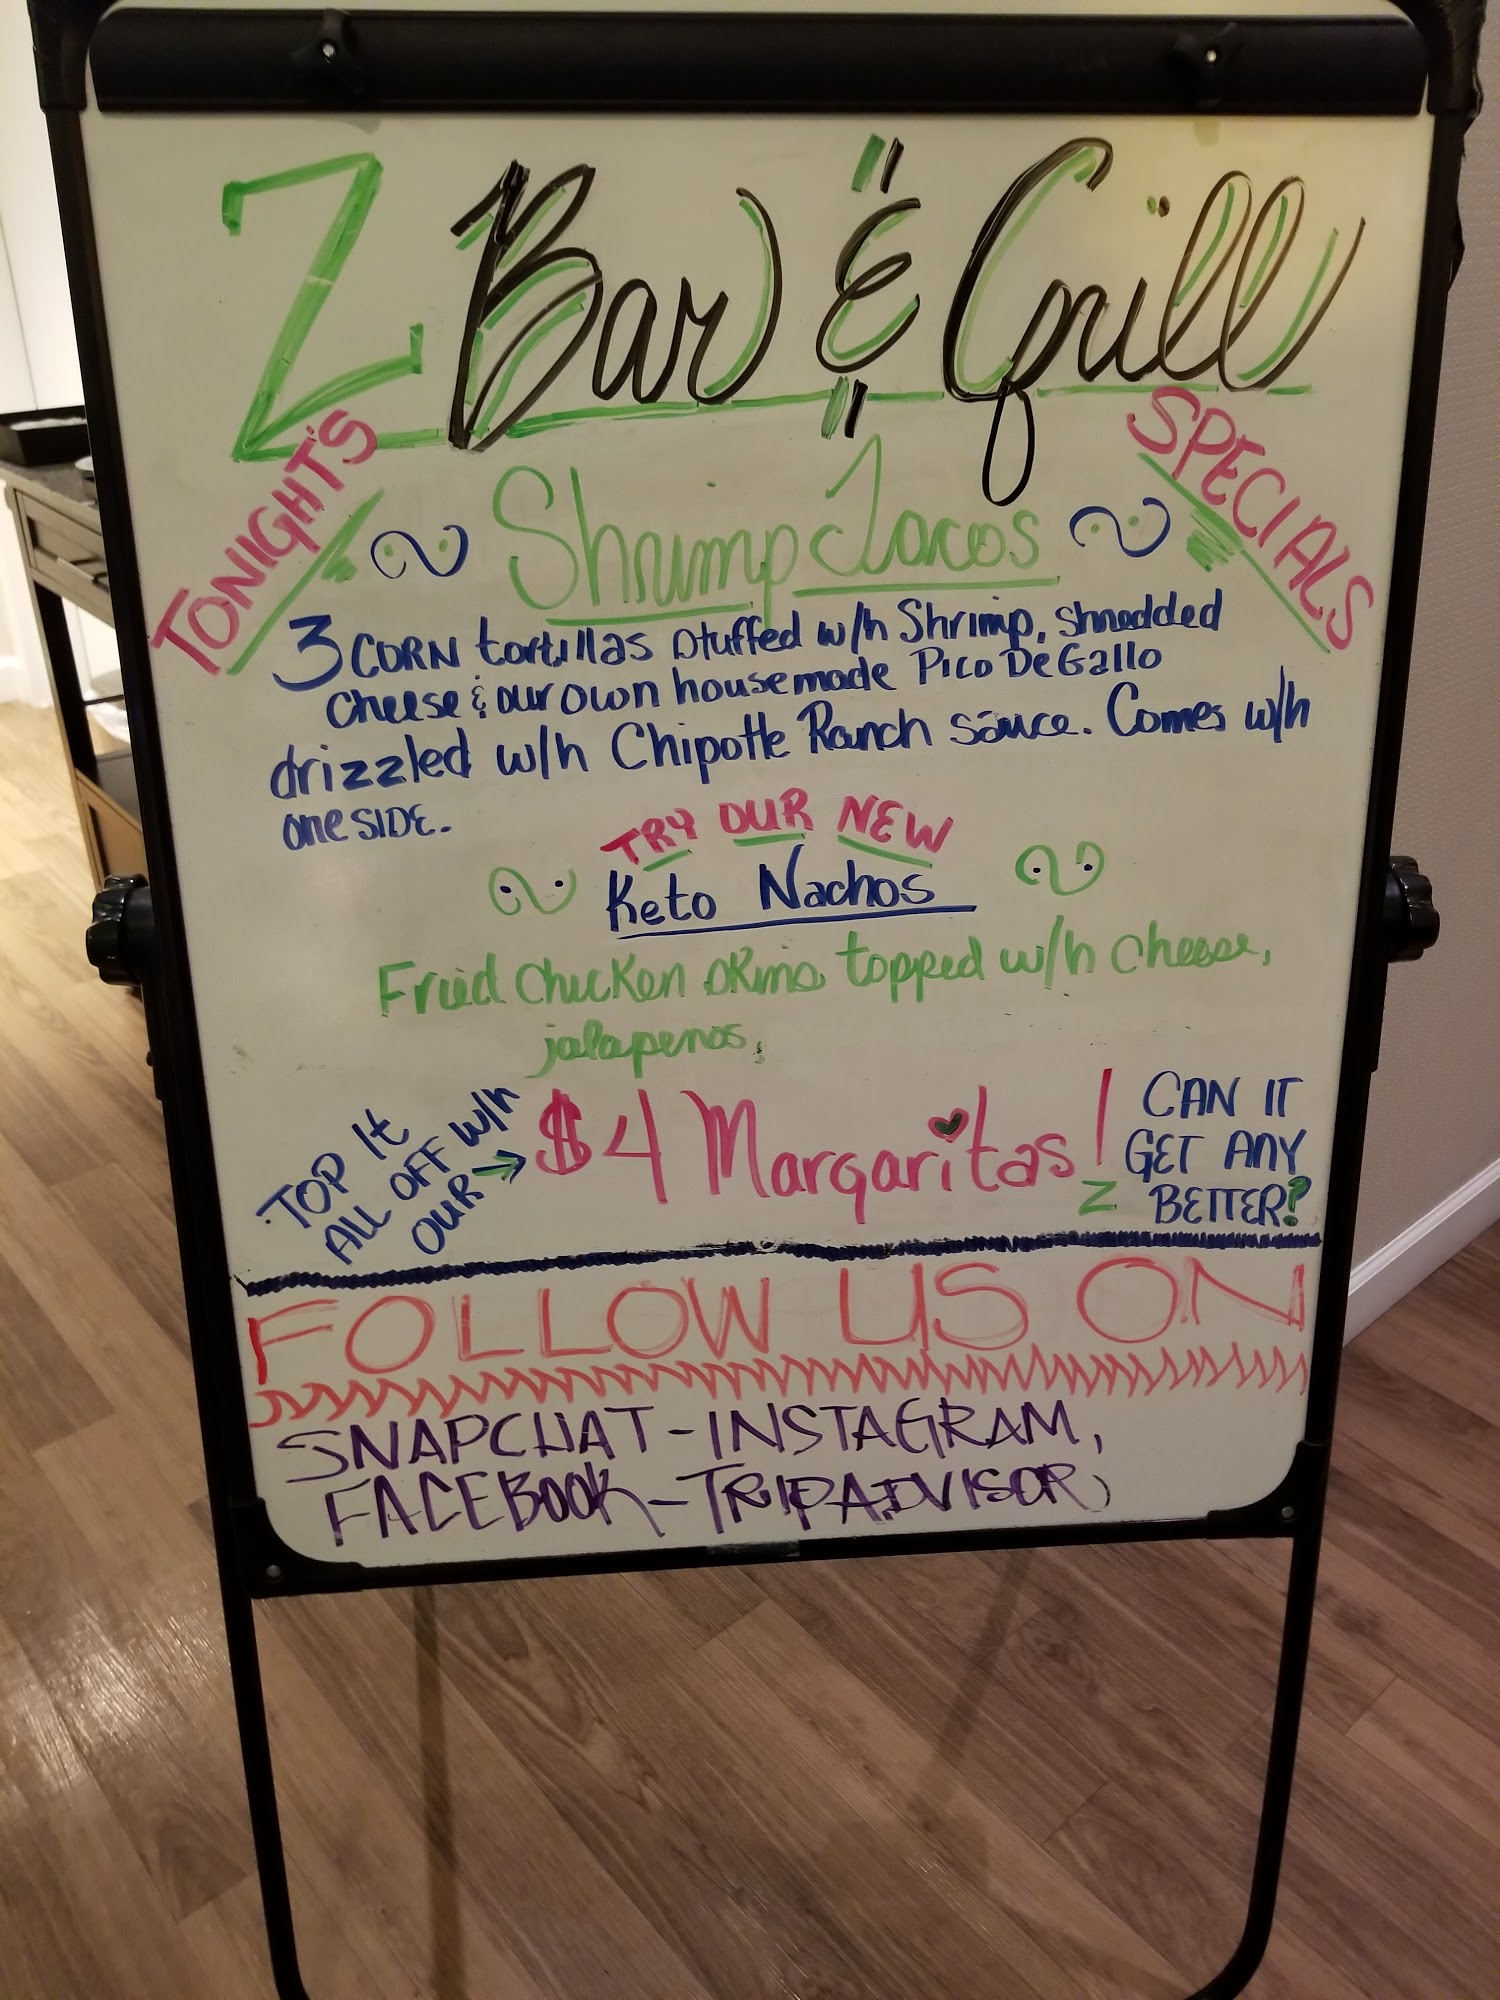 Z Bar & Grill
TONIGHT'S
SPECIALS
Shrimp Tacos
3 CORN tortillas stuffed w/h Shrimp, shredded
cheese & our own housemade Pico De Gallo
drizzled w/h Chipotle Ranch sauce. Comes w/h
one SIDE.
TRY OUR NEW
Keto Nachos
Fried Chicken skins topped w/h cheese,
jalapenos.
TOP It
ALL OFF w/h
OUR → $4 Margaritas!
CAN IT
GET ANY
BETTER?
Z
FOLLOW US ON
SNAPCHAT - INSTAGRAM,
FACEBOOK - TRIPADVISOR,